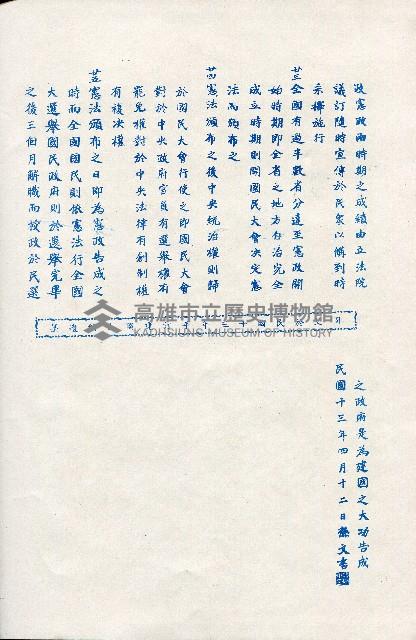 政憲政兩時期之成績由立法院
議訂隨時宣傳於民衆以備到時
采擇施行
廿三全國有過半數省分達至憲政開
始時期即全省之地方自治完全
成立時期則開國民大會決定憲
法而頒布之
廿四憲法頒布之後中央統治權則歸
於國民大會行使之即國民大會
對於中央政府官員有選舉權有
罷免權對於中央法律有創制權
有複決權
廿五憲法頒布之日即為憲政告成之
時而全國國民則依憲法行全國
大選舉國民政府則於選舉完畢
之後三個月解職而授政於民選
之政府是為建國之大功告成
民國十三年四月十二日孫文書
高雄市立歷史博物館
KAOHSIUNG MUSEUM OF HISTORY